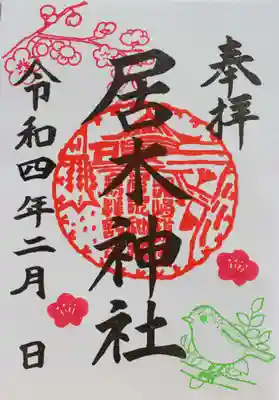 奉拝
居木神社
令和四年二月 日